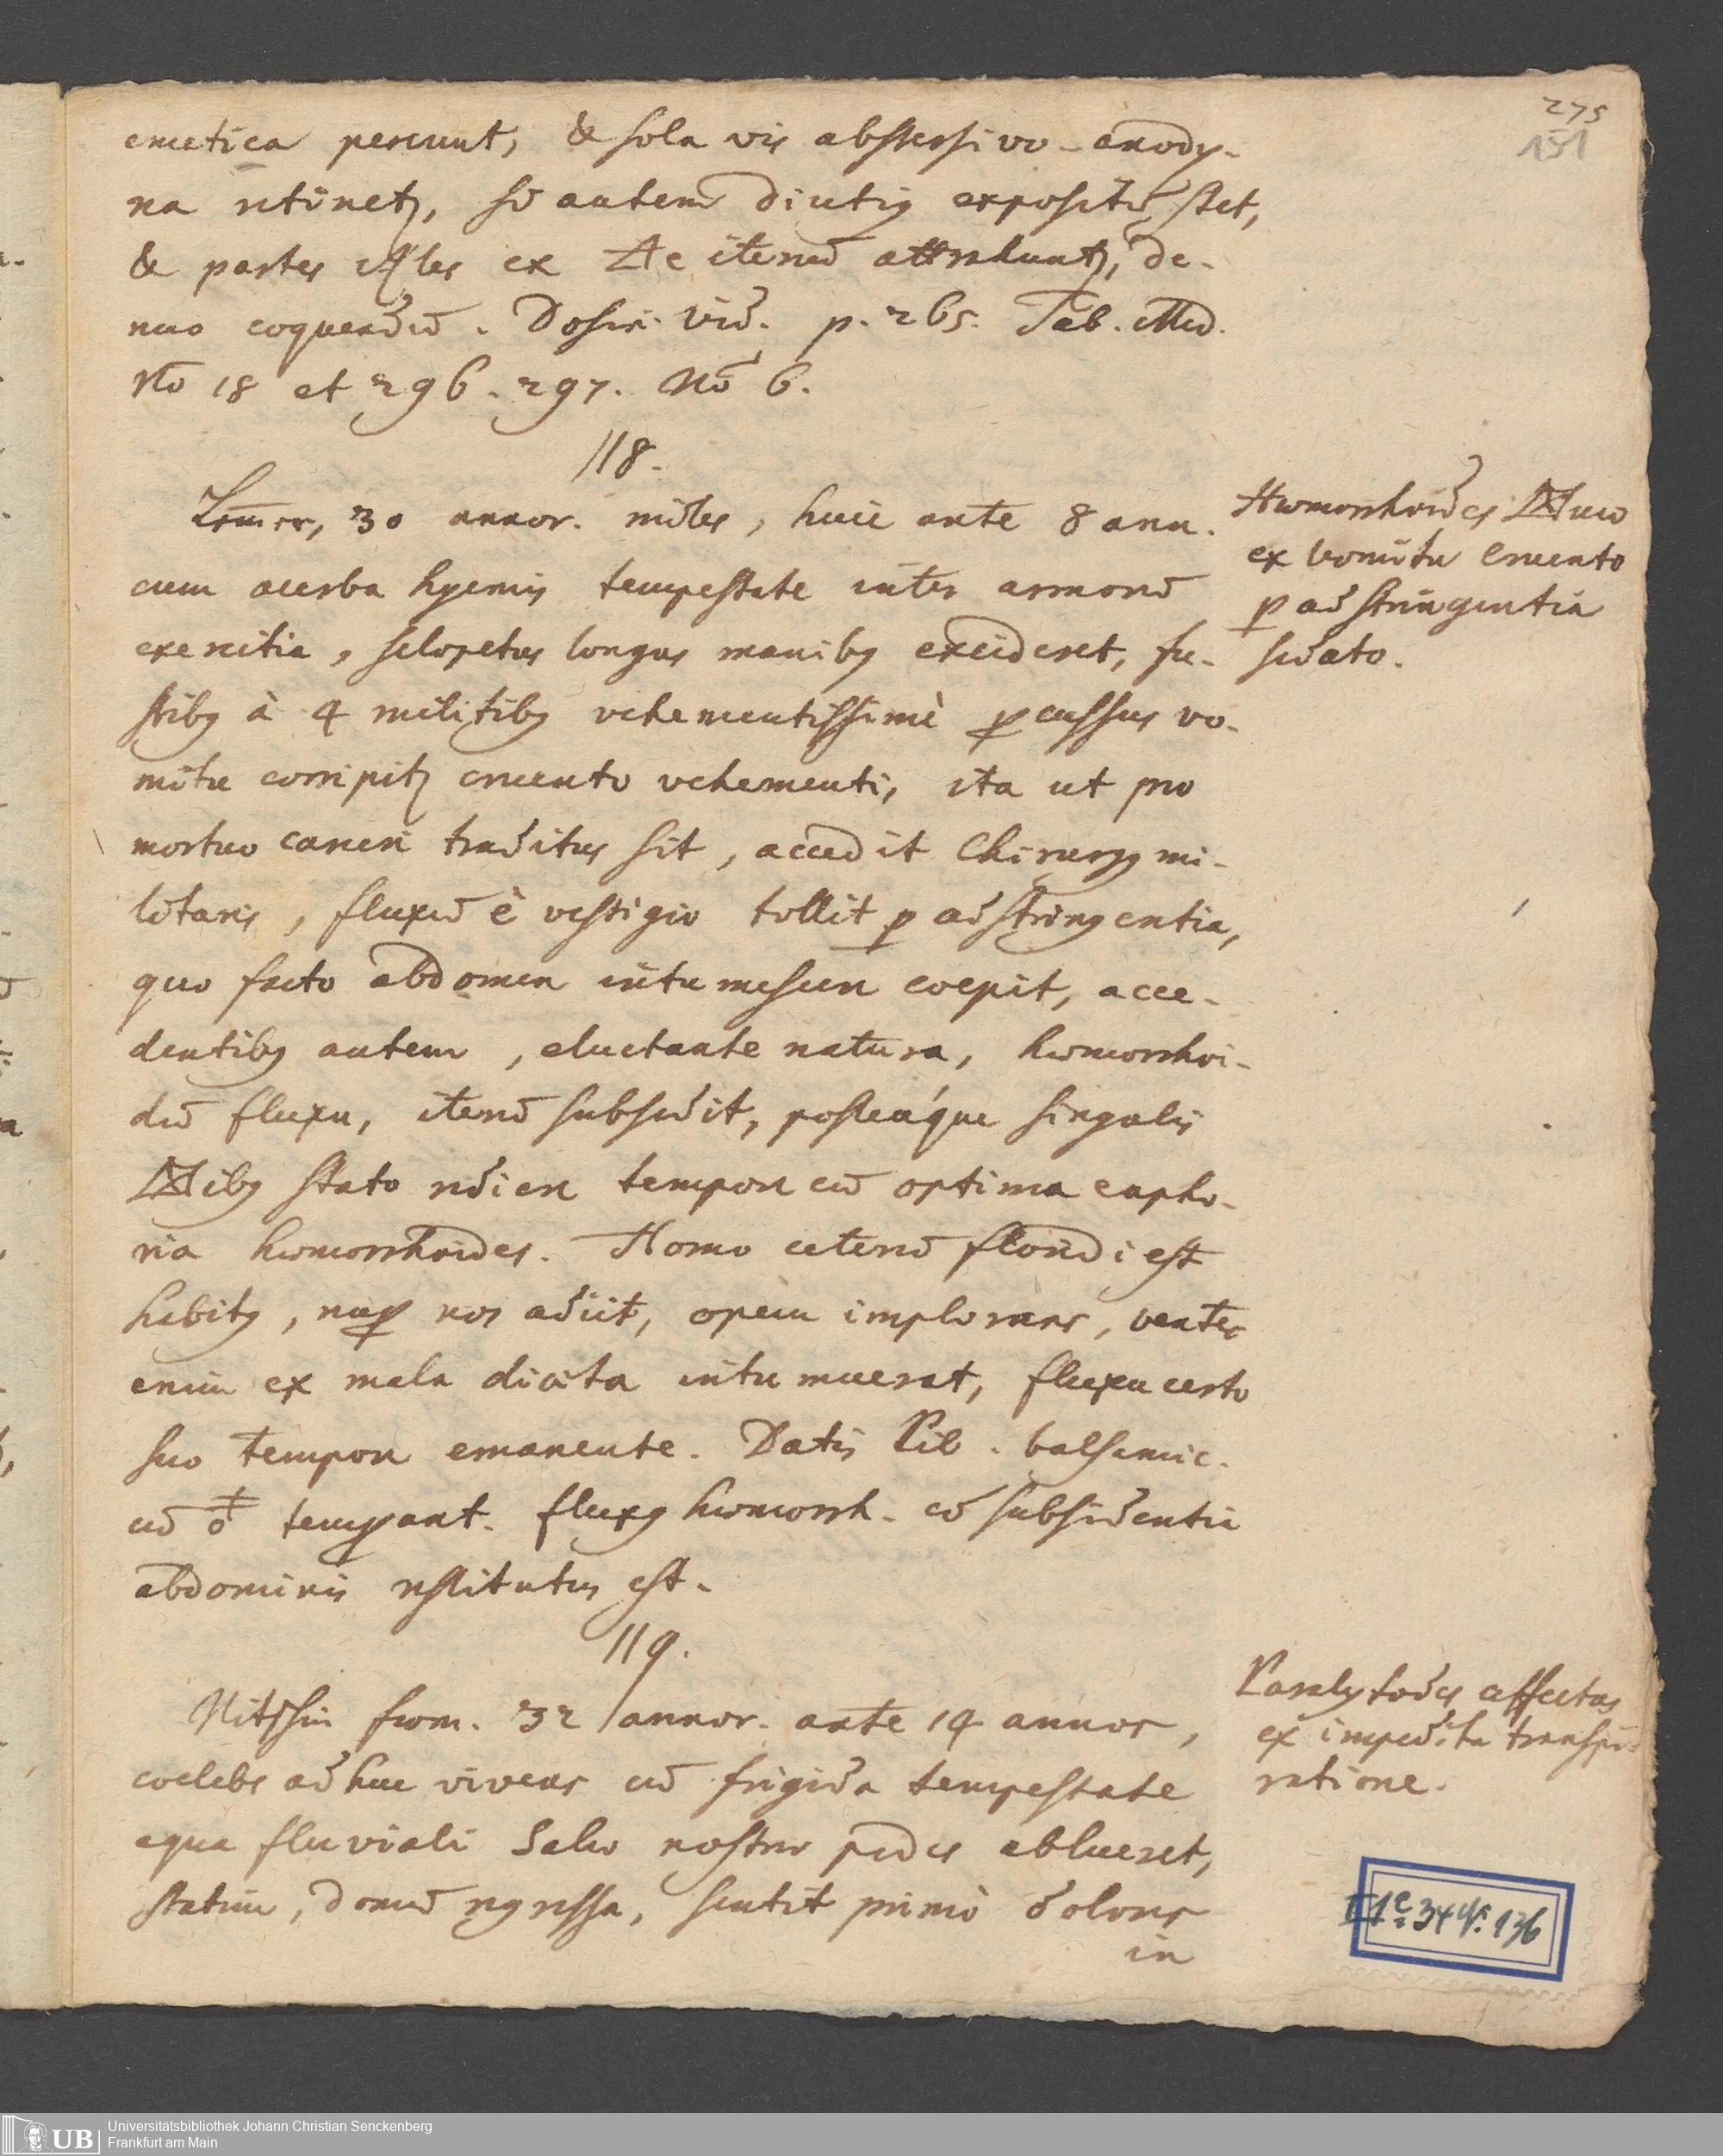 275
151
emetica pereunt, & sola vis abstersivo-anody-
na retinetur, si autem diutius expositum stet,
& partes ex 🜁e iterum attrahuntur, de-
nuo coquendum. Dosin. vid. p. 265. Tab. Med.
No 18 et 296. 297. No 6.
118.
30 annor. miles, huic ante 8 ann.
cum acerba hyemis tempestate inter armorum
exercitia, sclopetus longus manibus excideret, fu-
stibus à 4 militibus vehementissimè percussus vo-
mitu corripitur cruento vehementi, ita ut pro
mortuo carceri traditus sit, accedit Chirurgus mi-
litaris, fluxum è vestigio tollit per adstringentia,
quo facto abdomen intumescere coepit, acce-
dentibus autem, eluctante natura, hæmorrhoi-
dum fluxu, iterum subsedit, posteáque singulis
XXibus stato rediere tempore cum optima eupho-
ria hæmorrhoides. Homo ceterum floridi est
habitus, nuper nos adiit, opem implorans, venter
enim ex mala diæta intumuerat, fluxu certo
suo tempore emanente. Datis Pil. balsamic.
cum temperant. fluxus hæmorrh. cum subsidentia
abdominis restitutus est.
Hæmorrhoides XXuæ
ex vomitu cruento
per adstringentia
sedato.
119.
Nitzschin fæm. 32 annor. ante 14 annos,
coelebs adhuc vivens cum frigida tempestate
aqua fluviali Salæ nostræ pedes ablueret,
statim, domum regressa, sentit primò dolores
in
Paralytodes affectus
ex impedita transpi-
ratione.